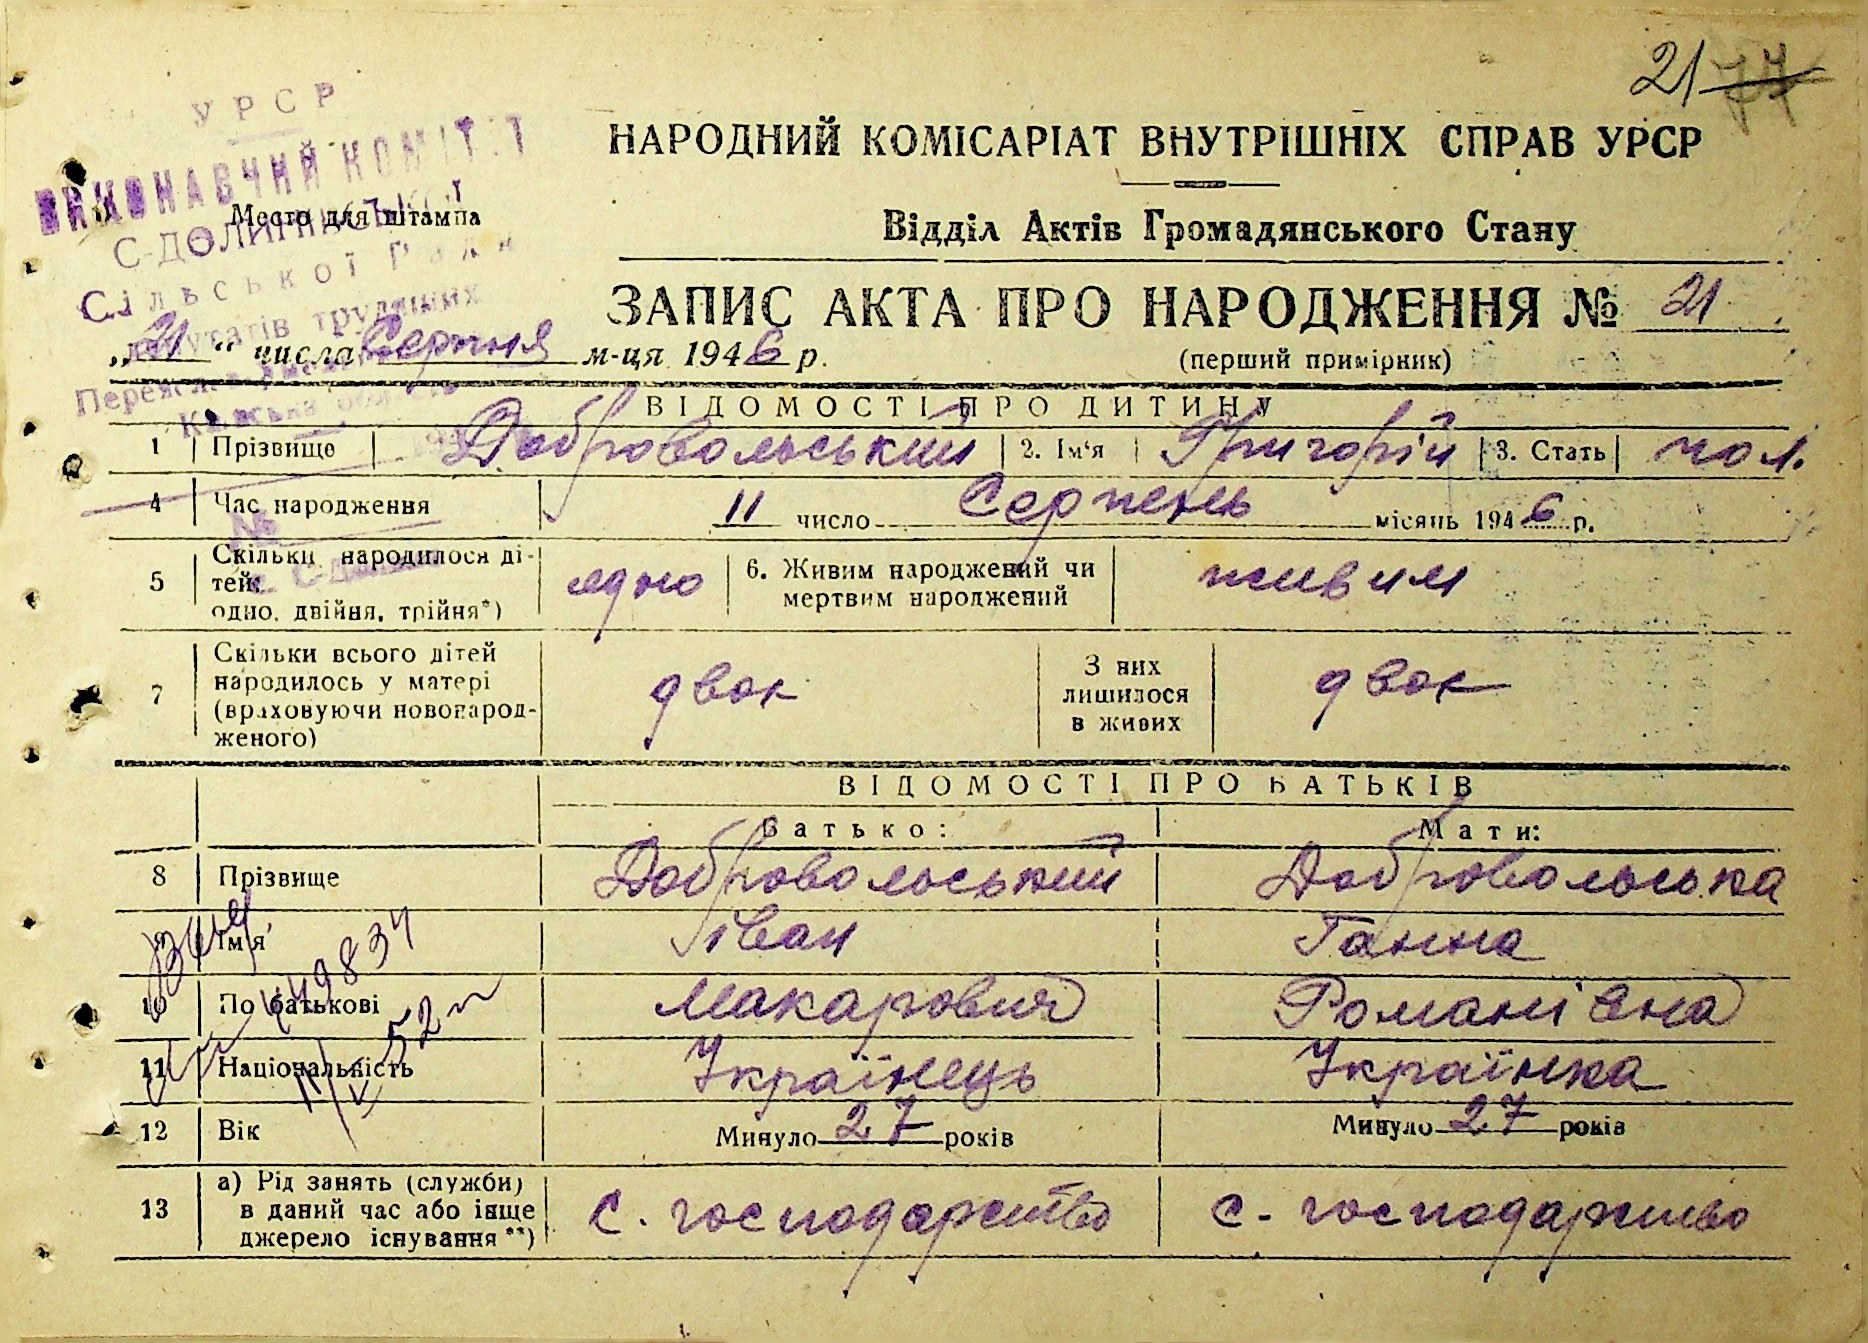 21 77
УРСР
ВИКОНАВЧИЙ КОМІТЕТ
НАРОДНИЙ КОМІСАРІАТ ВНУТРІШНІХ СПРАВ УРСР
Место для штампа
Відділ Актів Громадянського Стану
Сільської Ради
ЗАПИС АКТА ПРО НАРОДЖЕННЯ № 21
депутатів трудящих
„21“ числа Серпня м-ця 1946 р.
(перший примірник)
ВІДОМОСТІ ПРО ДИТИНУ
1 Прізвище Добровольський 2. Ім'я Григорій 3. Стать чол.
4 Час народження 11 число Серпень місяць 1946 р.
5 Скільки народилося дітей: одно, двійня, трійня*) одно 6. Живим народжений чи мертвим народжений живим
7 Скільки всього дітей народилось у матері (враховуючи новонародженого) двох З них лишилося в живих двох
ВІДОМОСТІ ПРО БАТЬКІВ
Батько: Мати:
8 Прізвище Добровольський Добровольська
9 Ім'я Іван Ганна
10 По батькові Макарович Романівна
11 Національність Українець Українка
12 Вік Минуло 27 років Минуло 27 років
13 а) Рід занять (служби) в даний час або інше джерело існування**) с. господарство с. господарство